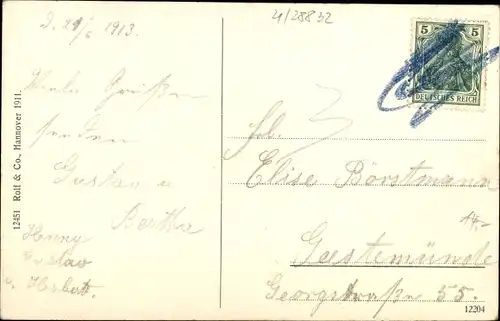 4/28832
D. 29/6 1913.
Viele Grüße
senden
Gustav u
Bertha
Henny
Gustav
u. Herbert.
12451 Rolf & Co., Hannover 1911.
5 5
DEUTSCHES REICH
Elise Borstmann
Geestemünde
Georgstraße 55.
12204